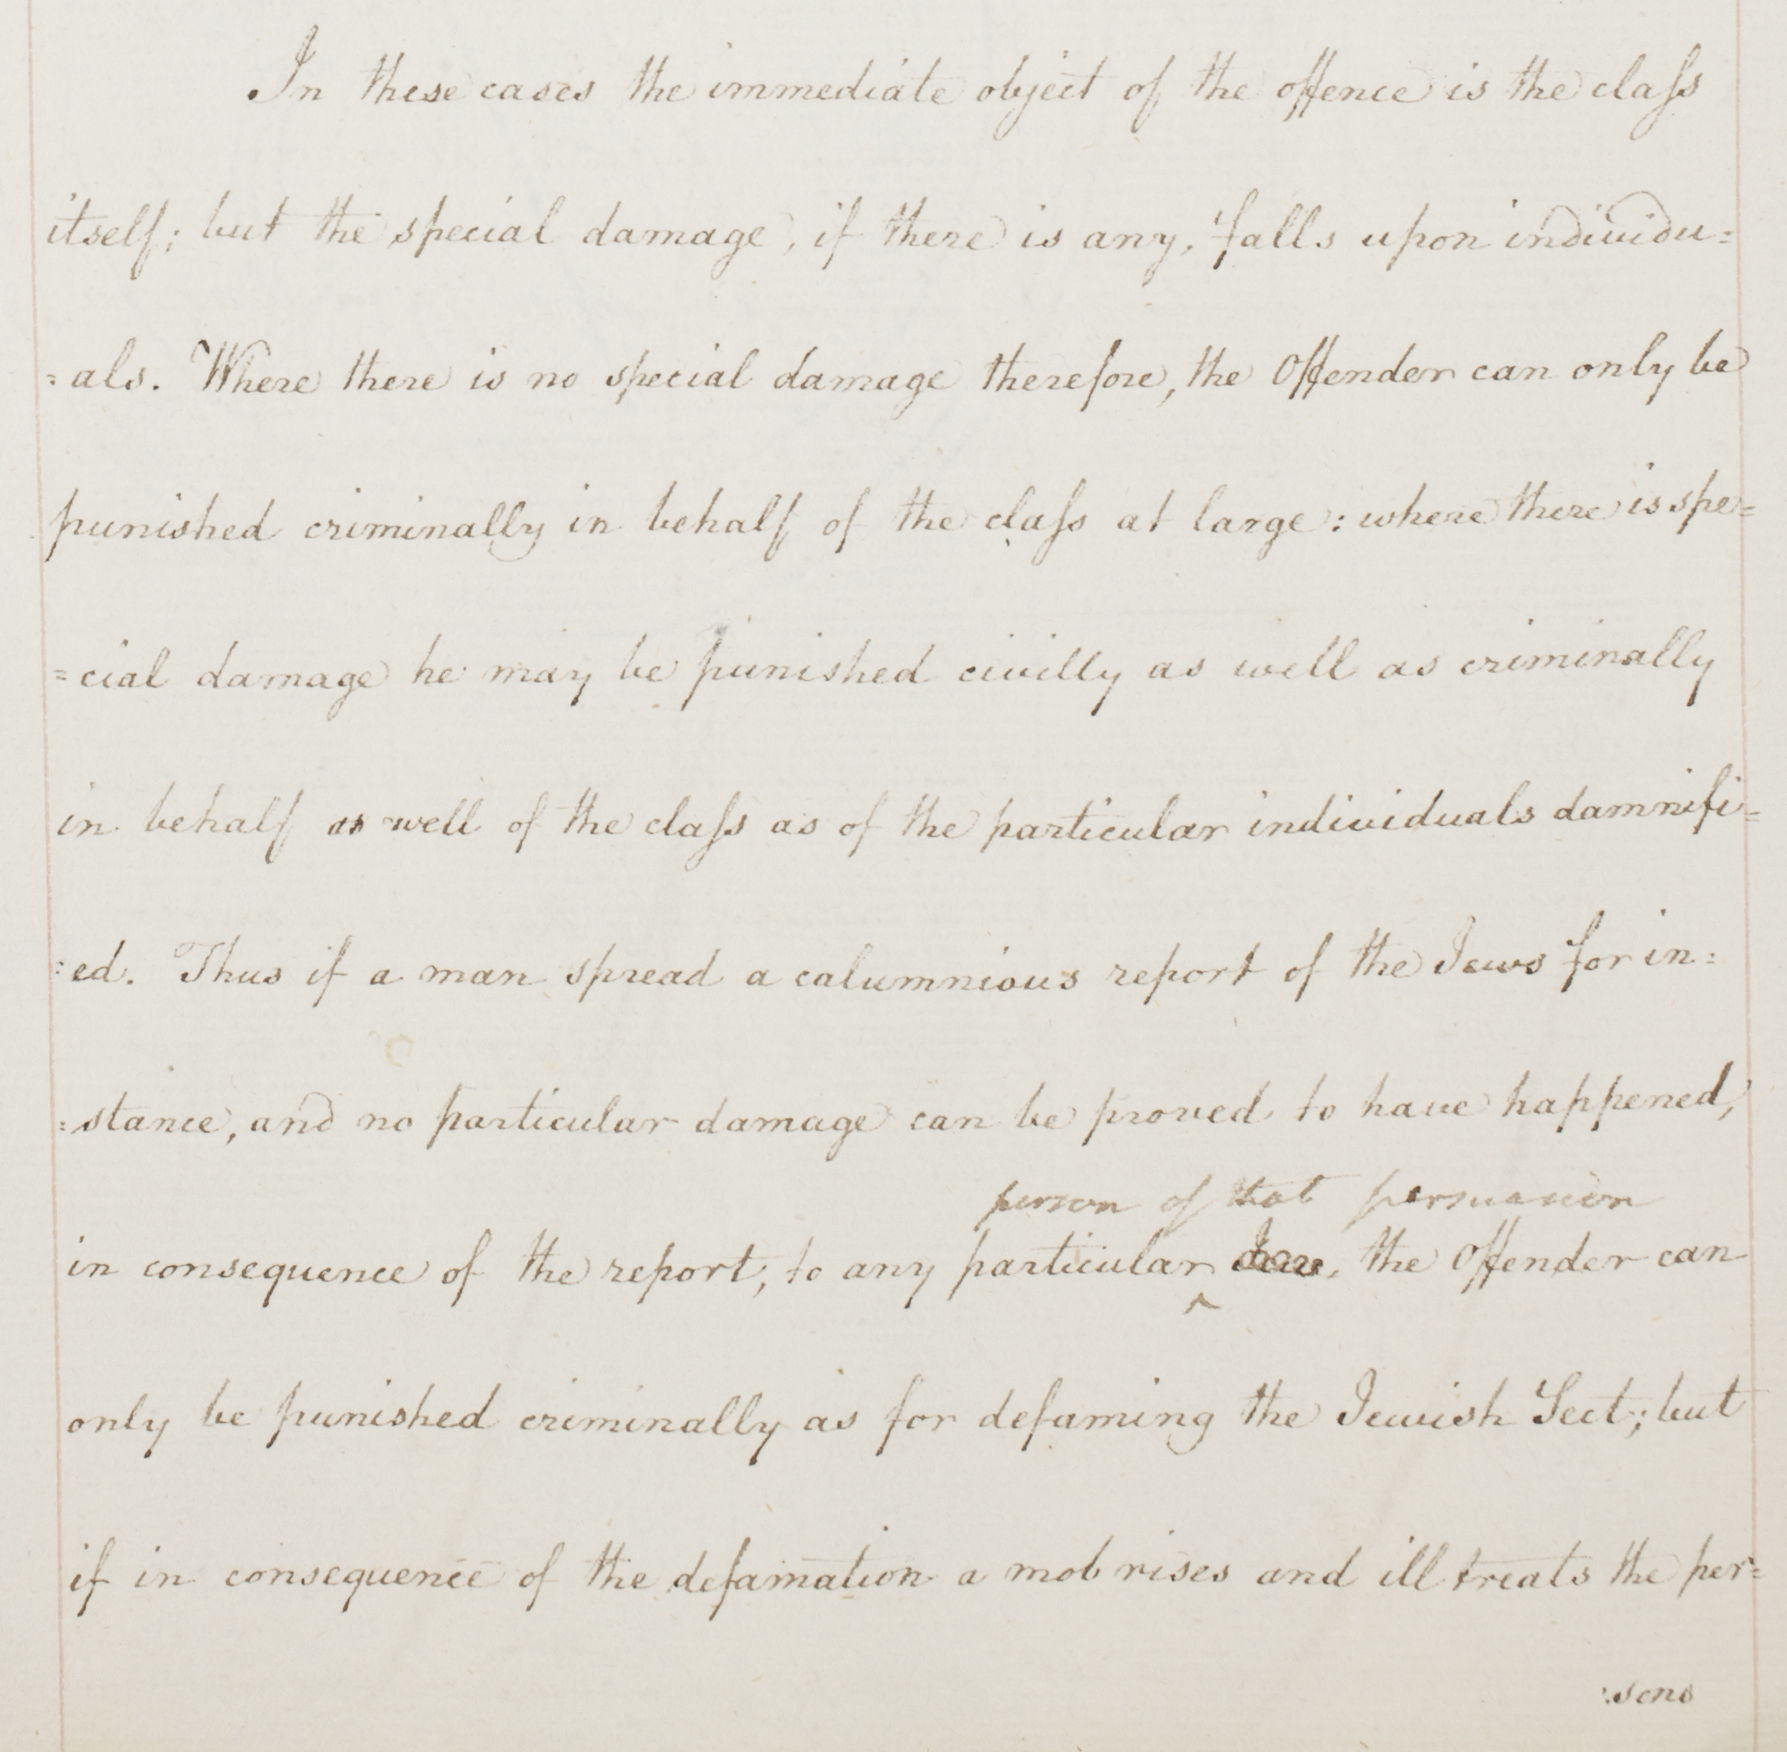 In these cases the immediate object of the offence is the claſs
itself; but the special damage, if there is any, falls upon individu=
=als. Where there is no special damage therefore, the Offender can only be
punished criminally in behalf of the claſs at large: where there is spe=
=cial damage he may be punished civilly as well as criminally
in behalf as well of the claſs as of the particular individuals damnifi=
:ed. Thus if a man spread a calumnious report of the Jews for in:
:stance, and no particular damage can be proved to have happened,
person of that persuasion
in consequence of the report, to any particular ^ Jew, the Offender can
only be punished criminally as for defaming the Jewish Sect; but
if in consequence of the defamation a mob rises and ill treats the per=
:sons